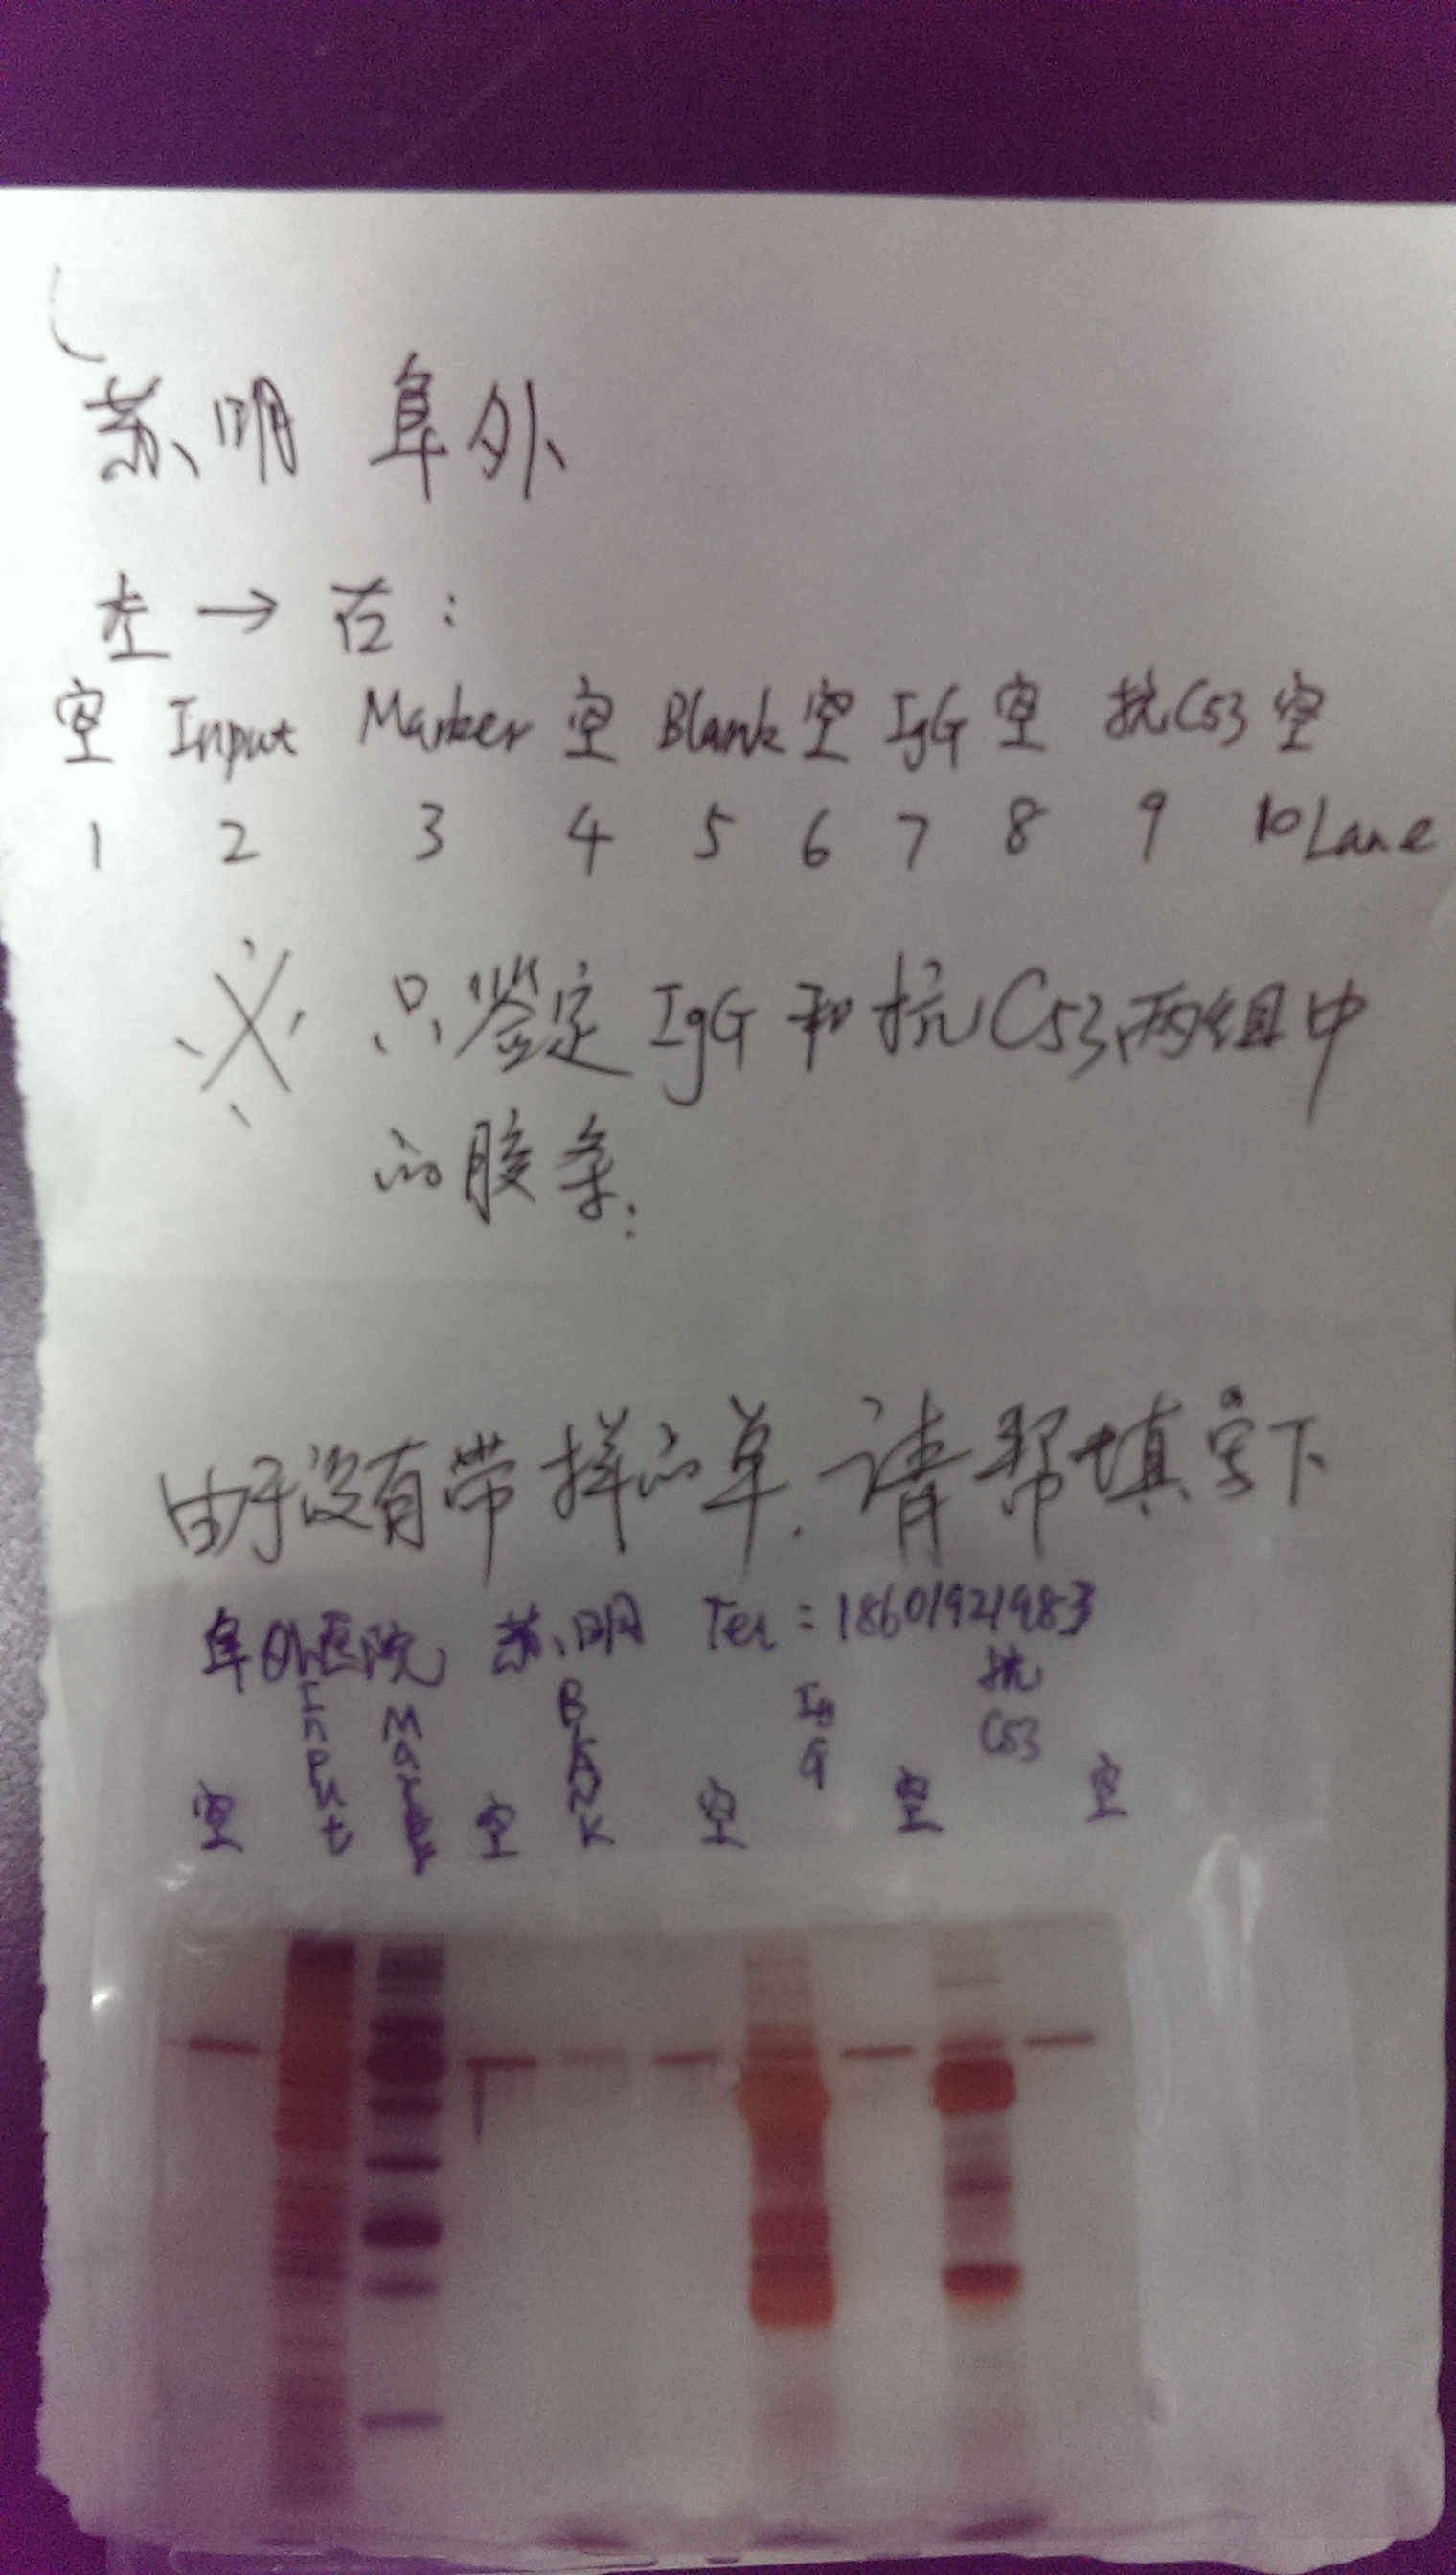 苏明 阜外
左 → 右：
空 Input Marker 空 Blank 空 IgG 空 抗C53 空
1 2 3 4 5 6 7 8 9 10 Lane
※ 只鉴定IgG和抗C53两组中
的胶条：
由于没有带样品单，请帮填写下
阜外医院 苏明 Tel：18601921983
空 Input Marker 空 BLANK 空 IgG 空 抗C53 空